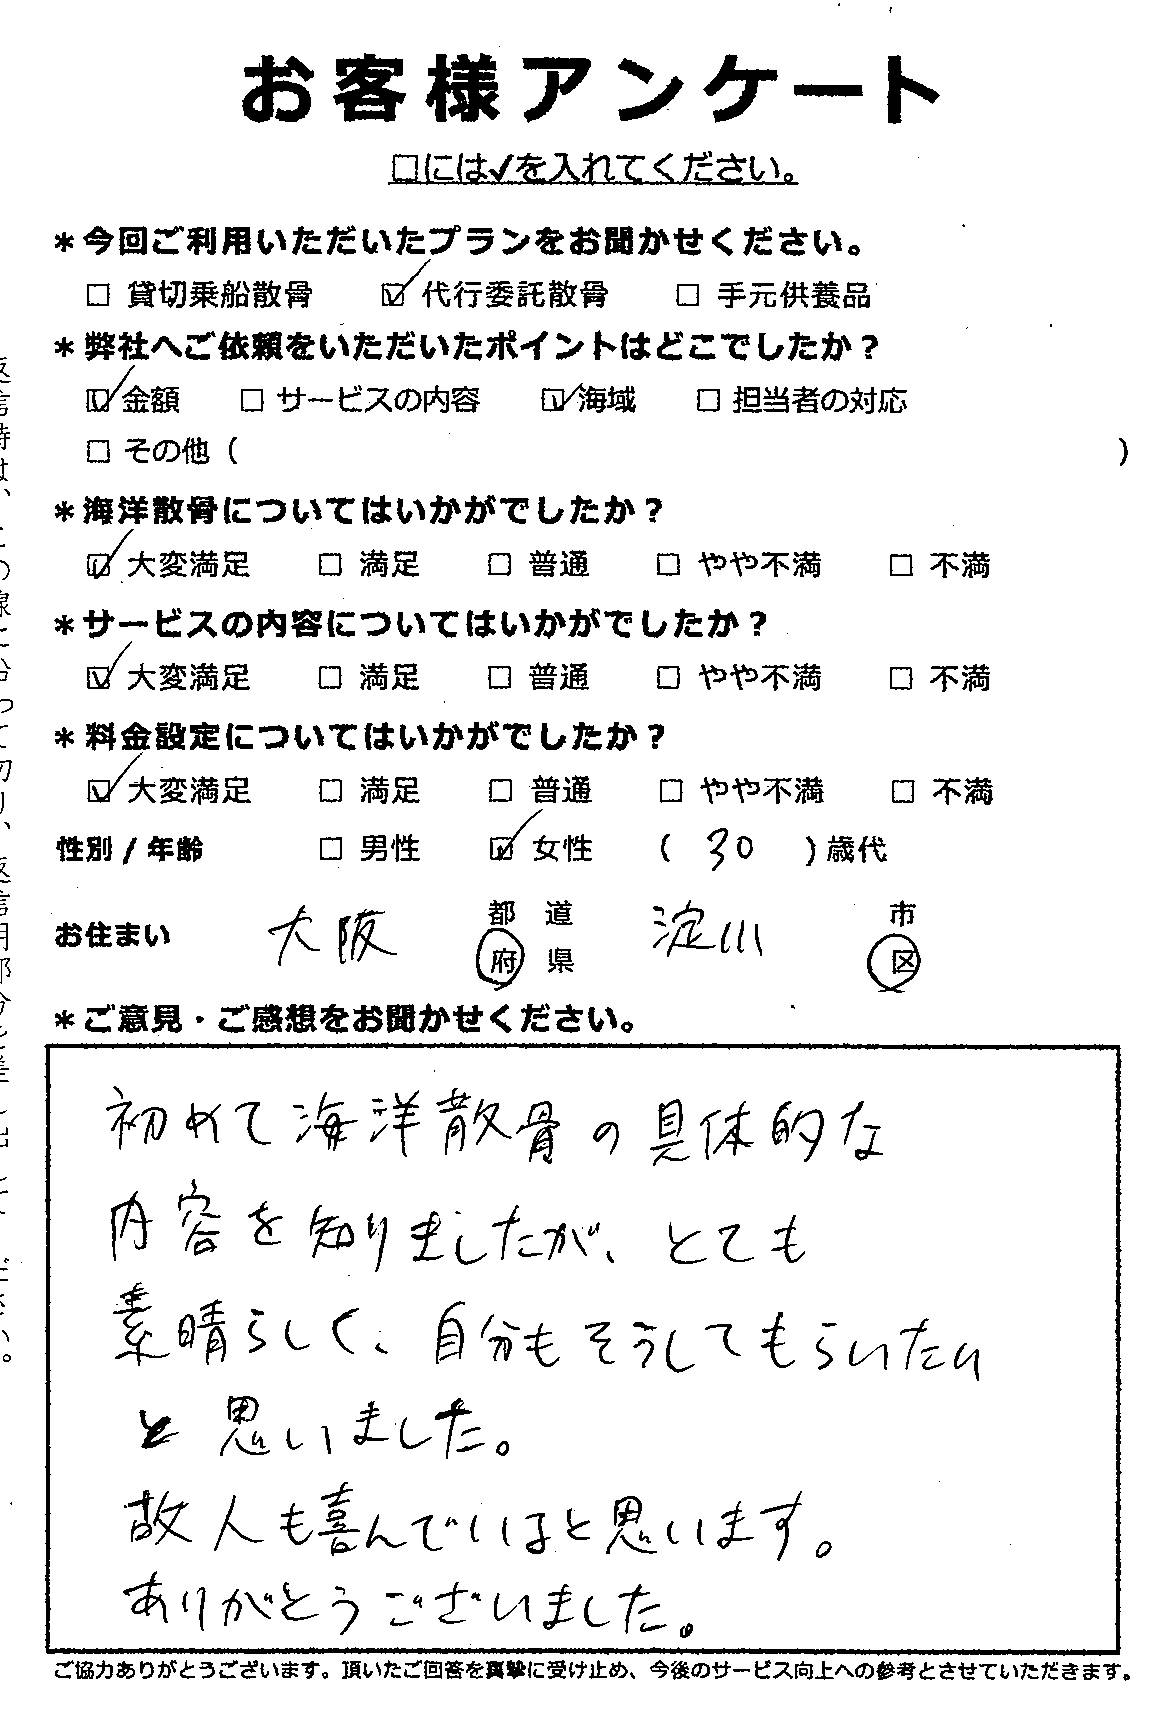 お客様アンケート
□には✓を入れてください。
＊今回ご利用いただいたプランをお聞かせください。
□ 貸切乗船散骨 ☑ 代行委託散骨 □ 手元供養品
＊弊社へご依頼をいただいたポイントはどこでしたか？
☑ 金額 □ サービスの内容 ☑ 海域 □ 担当者の対応
□ その他（ ）
＊海洋散骨についてはいかがでしたか？
☑ 大変満足 □ 満足 □ 普通 □ やや不満 □ 不満
＊サービスの内容についてはいかがでしたか？
☑ 大変満足 □ 満足 □ 普通 □ やや不満 □ 不満
＊料金設定についてはいかがでしたか？
☑ 大変満足 □ 満足 □ 普通 □ やや不満 □ 不満
性別 / 年齢 □ 男性 ☑ 女性 （ 30 ）歳代
お住まい 大阪 都 道 府 県 淀川 市 区
＊ご意見・ご感想をお聞かせください。
初めて海洋散骨の具体的な
内容を知りましたが、とても
素晴らしく、自分もそうしてもらいたい
と思いました。
故人も喜んでいると思います。
ありがとうございました。
ご協力ありがとうございます。頂いたご回答を真摯に受け止め、今後のサービス向上への参考とさせていただきます。